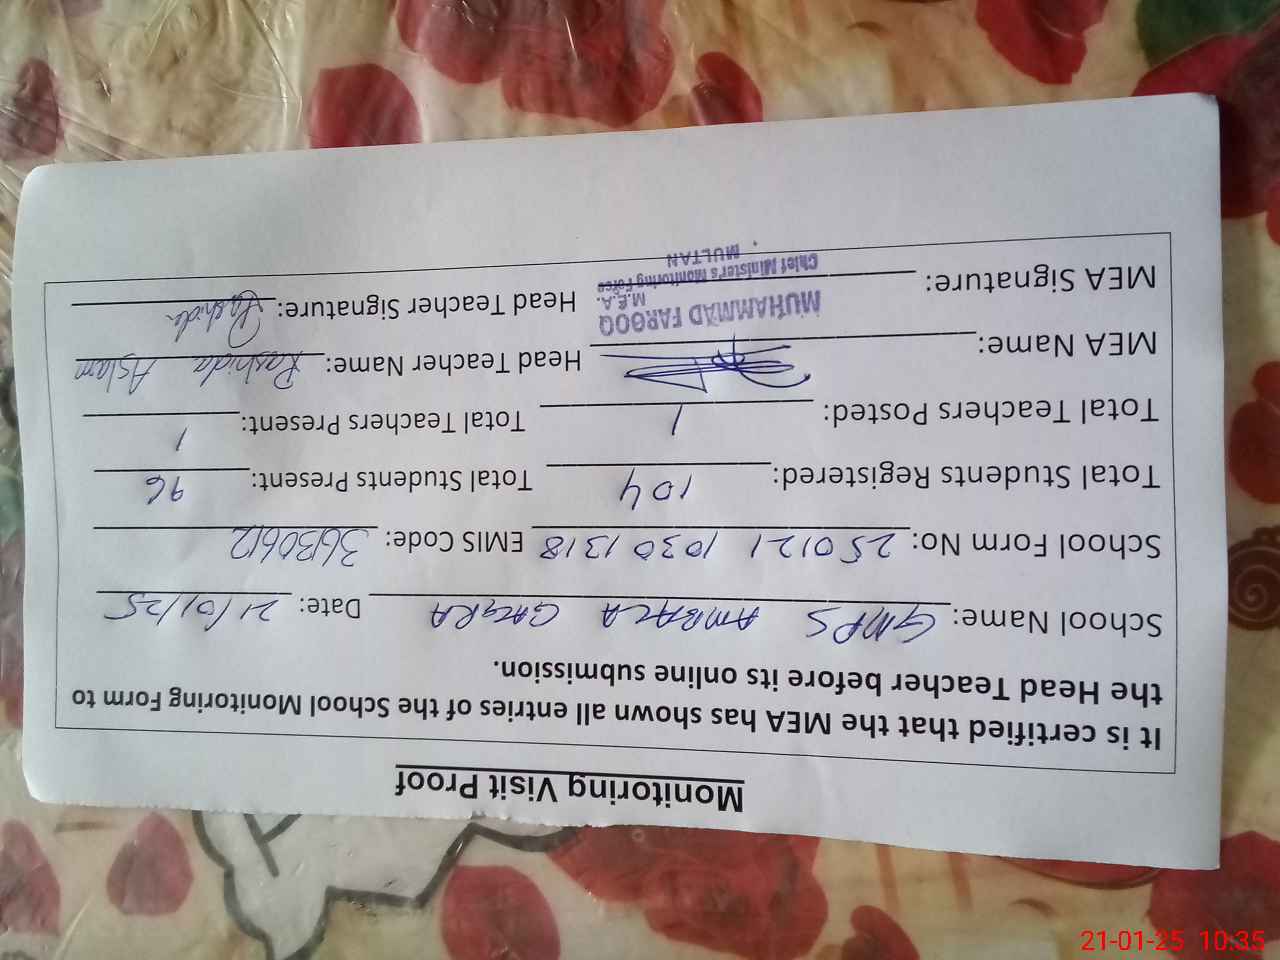 Monitoring Visit Proof
It is certified that the MEA has shown all entries of the School Monitoring Form to
the Head Teacher before its online submission.
School Name: GMPS AMBALA GAGRA Date: 21/01/25
School Form No: 250121 1030 1318 EMIS Code: 36130612
Total Students Registered: 104 Total Students Present: 96
Total Teachers Posted: 1 Total Teachers Present: 1
MEA Name: Head Teacher Name: Rashida Aslam
MUHAMMAD FAROOQ
M.E.A.
MEA Signature: Head Teacher Signature: Rashida
Chief Minister's Monitoring Force
MULTAN
21-01-25 10:35